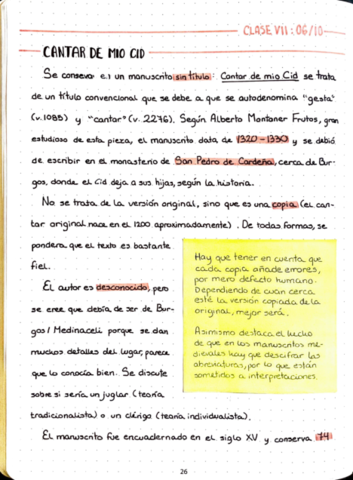 CLASE VII: 06/10
CANTAR DE MIO CID
Se conserva en un manuscrito sin título: Cantar de mio Cid se trata
de un título convencional que se debe a que se autodenomina "gesta"
(v.1085) y "cantar" (v. 2276). Según Alberto Montaner Frutos, gran
estudioso de esta pieza, el manuscrito data de 1320-1330 y se debió
de escribir en el monasterio de San Pedro de Cardeña, cerca de Bur-
gos, donde el Cid deja a sus hijas, según la historia.
No se trata de la versión original, sino que es una copia (el can-
tar original nace en el 1200 aproximadamente). De todas formas, se
pondera que el texto es bastante
fiel.
El autor es desconocido, pero
se cree que debía de ser de Bur-
gos / Medinaceli porque se dan
muchos detalles del lugar, parece
que lo conocía bien. Se discute
sobre si sería un juglar (teoría
tradicionalista) o un clérigo (teoría individualista).
El manuscrito fue encuadernado en el siglo XV y conserva 74
Hay que tener en cuenta que
cada copia añade errores,
por mero defecto humano.
Dependiendo de cuan cerca
esté la versión copiada de la
original, mejor será.
Asimismo destaca el hecho
de que en los manuscritos me-
dievales hay que descifrar las
abreviaturas, por lo que están
sometidos a interpretaciones.
26